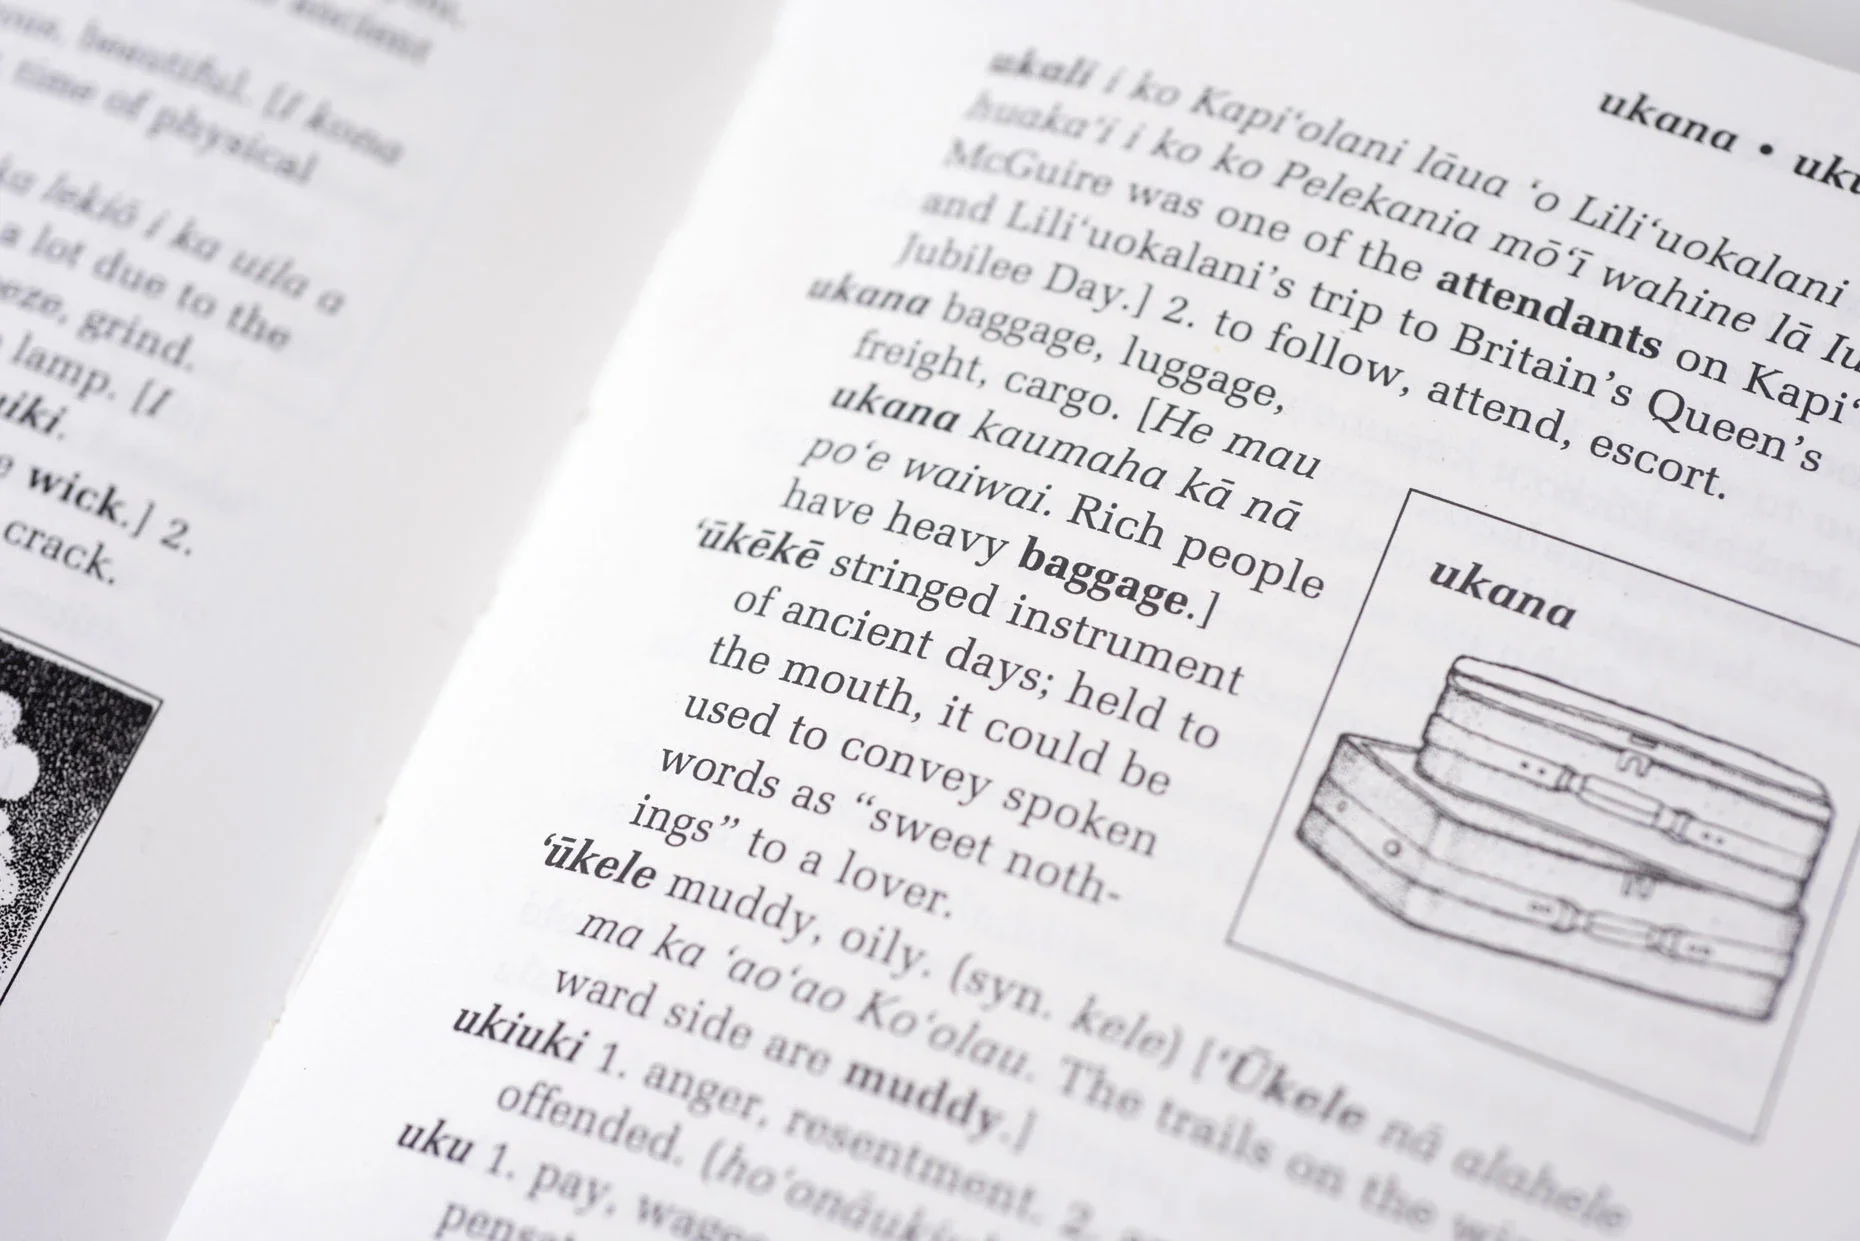 ancient
beautiful. [I kona
time of physical
lekiō i ka uila a
a lot due to the
eze, grind.
lamp. [I
iki.
wick.] 2.
crack.
ukana • uku
ukali i ko Kapi‘olani lāua ‘o Lili‘uokalani
huaka‘i i ko ko Pelekania mō‘ī wahine lā Iu
McGuire was one of the attendants on Kapi‘
and Lili‘uokalani’s trip to Britain’s Queen’s
Jubilee Day.] 2. to follow, attend, escort.
ukana baggage, luggage,
freight, cargo. [He mau
ukana kaumaha kā nā
po‘e waiwai. Rich people
have heavy baggage.]
‘ūkēkē stringed instrument
of ancient days; held to
the mouth, it could be
used to convey spoken
words as “sweet noth-
ings” to a lover.
ukana
‘ūkele muddy, oily. (syn. kele) [‘Ūkele nā alahele
ma ka ‘ao‘ao Ko‘olau. The trails on the wi
ward side are muddy.]
ukiuki 1. anger, resentment. 2.
offended.
uku 1. pay, wages
pensat